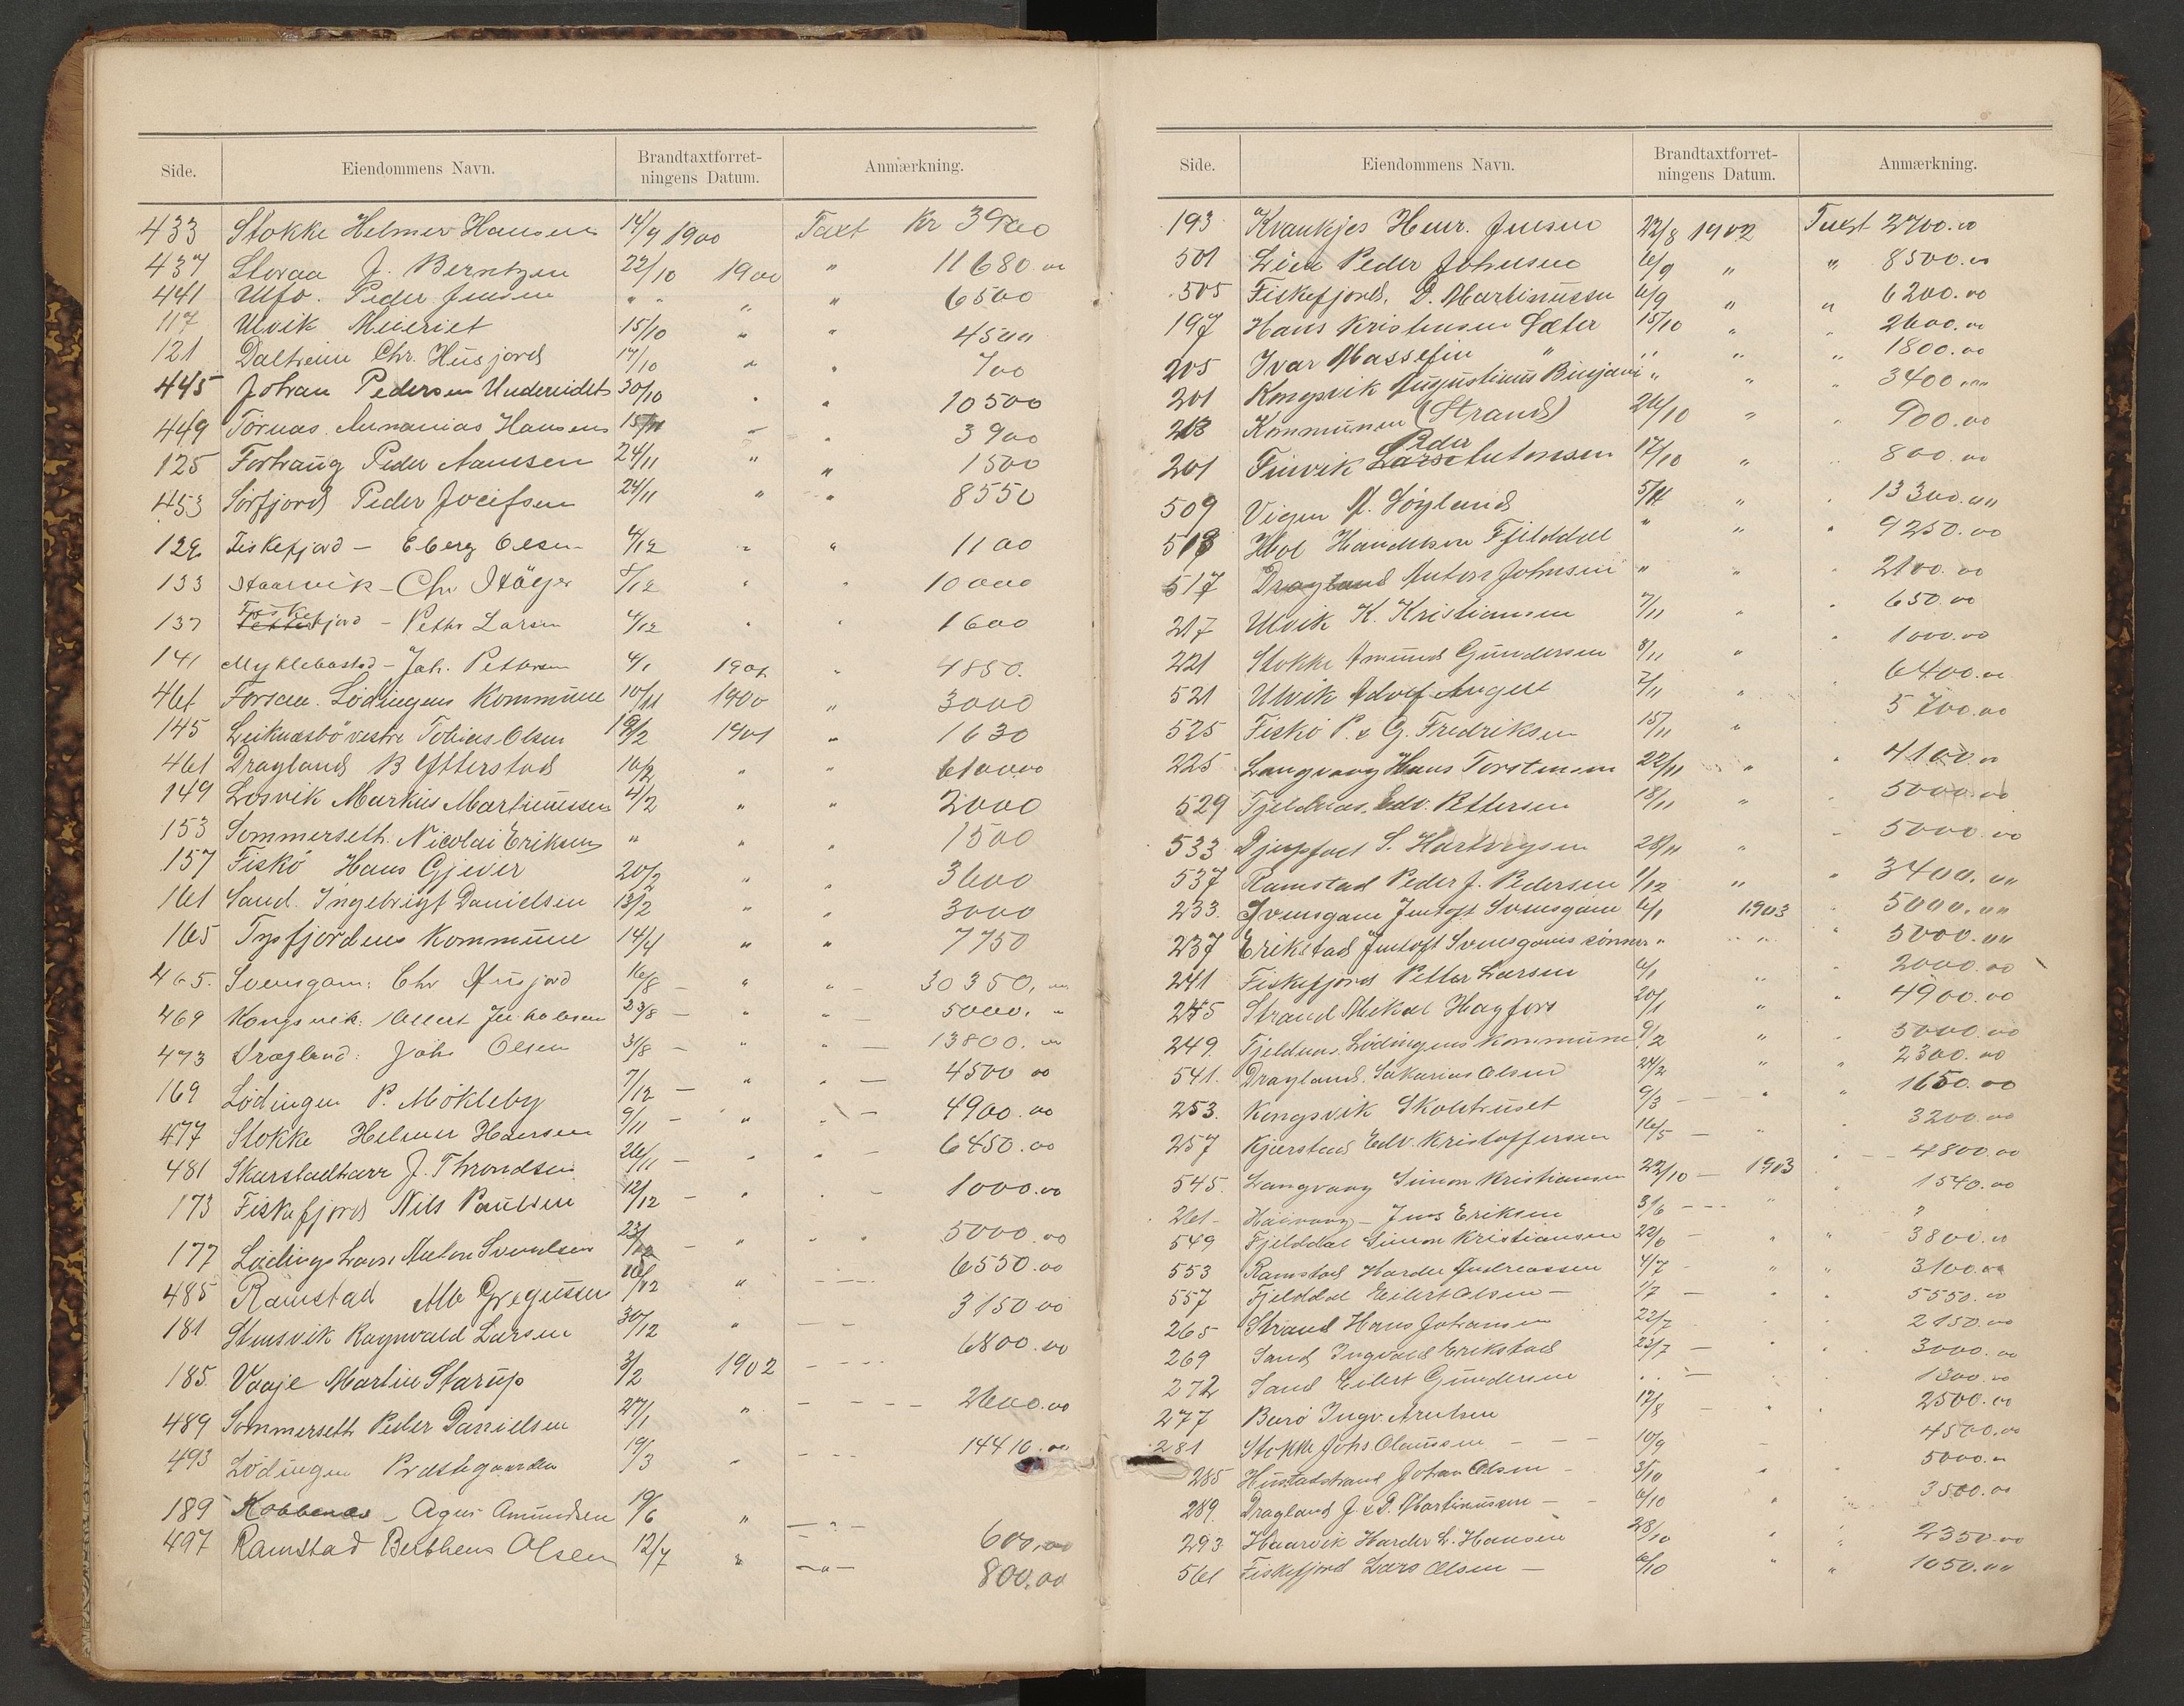 Side. Eiendommens Navn. Brandtaxtforret- ningens Datum. Anmærkning.
433 Stokke Helmer Hansen 14/9 1900 Taxt Kr 3900
437 Storaa J. Berntzen 22/10 1900 " 11680.00
441 Ulfø. Peder Jensen " " " " 6500
117 Ulvik Meieriet 15/10 " " 4500
121 Dalheim Chr. Husjord 17/10 " " 700
445 Johan Pedersen Undereidet 30/10 " " 10500
449 Törnæs. Annanias Hansen " " 3900
125 Fortraug Peder 24/11 " " 1500
453 Sörfjord Peder Joeifsen 24/11 " " 8550
129 Fiskefjord - Eberg Olsen 4/12 " " 1100
133 Staarvik - Chr 5/12 " " 10000
137 Fiskefjord - Petter Larsen 4/12 " " 1600
141 Myklebostad - Joh. Pettersen 4/1 1901 " 4850.
461 Forsaa. Lödingens Kommune 10/11 1900 " 3000
145 Leiknæsbö vestre Tobias Olsen 19/2 1901 " 1630
461 Dragland B Efterstad 16/2 " " 61000
149 Losvik Markus Martinussen 4/2 " " 2000
153 Sommerseth. Nicolai Eriksen " " " 1500
157 Fiskö Hans Gjever 20/2 " " 3600
161 Sand. Ingebrigt Danielsen 13/2 " " 3000
165 Tysfjordens Kommune 14/4 " " 7750
465. Svensgam: Chr Husjord 16/8 - " " - 30350,
469 Kongsvik: Jakobsen 23/8 - " " - 5000. "
473 Dragland: Johs Olsen 31/8 - " " - 13800. 00
169 Lödingen P. Mökleby 7/12 - " " - 4500 00
477 Stokke Helmer Hansen 9/11 - " - 4900.00
481 Skarstadhavn J. Throndsen 26/11 - " " - 6450.00
173 Fiskefjord Nils Paulsen 12/12 - " " - 1000.00
177 Lödings havn Anton Svendsen 23/12 - " " " 5000.00
485 Ramstad Alb Gregusen 16/12 " - - - 6550.00
181 Stensvik Ragnvald Larsen 30/12 " - - 3150 00
185. Vaaje Martin Starup 3/2 1902 - - - 6800.00
489 Sommerseth Peder Danielsen 27/1 " - - - - 2600.00
493 Lödingen Præstegaarden 19/3 " - - - 14410.00
189 Kobbenæs - Agus Amundsen 19/6 " - " - 600,00
497 Ramstad Berthens Olsen 12/7 " - " - 800,00
Side. Eiendommens Navn. Brandtaxtforret- ningens Datum. Anmærkning.
193 Kvankjes Henr. Jensen 22/8 1902 Taxt 2700.00
501 Lien Peder Johnsen 6/9 " " 8500.00
505 Fiskefjord, D. Martinussen 6/9 " " 6200.00
197 Hans Kristensen Sæter 15/10 " " 2600.00
205 Ivar Hassefin " " " " 1800.00
201 Kongsvik Augustinus Binjam " " " 3400.00
213 Kommunen (Strand) 24/10 " " 900.00
201 Finvik Peder Antonsen 17/10 " " 800.00
509 Vigen Söyland 5/11 " " 13300.00
513 Hol Hendrikson Fjelddal " " " 9250.00
517 Dragland Anton Johnsen " " " 2100.00
217 Ulvik K. Kristiansen 7/11 " " 650.00
221 Stokke Amund Gundersen 8/11 " " 1000.00
521 Ulvik Adolf Angell 7/11 " " 6400.00
525 Fiskö P. & G. Fredriksen 15/11 " " 5700.00
225 Langvaag Hans Torstensen 22/11 " " 4100.00
529 Fjeldnæs. Edv. Pettersen 18/11 " " 5000.00
533 Djupfæst S. Hartvigsen 28/11 " - 5000.00
537 Ramstad Peder J. Pedersen 1/12 " " 3400.00
233. Svensgam Jentoft Svensgam 6/1 1903 " 5000.00
237 Erikstad Jentoft Svensgams sönner " " " 5000.00
241 Fiskefjord Petter Larsen 6/1 " " 2000.00
245 Strand Mikal Hagfors 20/1 " " 4900.00
249. Fjeldnæs. Lödingens Kommune 9/2 " " 3000.00
541. Dragland. Sakarias Olsen 24/2 " " 2300.00
253. Kongsvik Skolehuset 9/3 - - " " 1650.00
257 Kjerstad Edv. Kristoffersen 16/5 - " 3200.00
545. Langvaag Simon Kristiansen 22/10 - 1903 " - - 4800.00
261 - Haivaag - Jens Eriksen 3/6 - - - " " 1540.00
549 Fjelddal Simon Kristiansen 22/6 - " " ?
553 Ramstad Harder Andreassen 4/7 - " " 3800.00
557 Fjelddal Eilert Olsen - 1/7 - " " 3100.00
265 Strand Hans Johansen 22/7 " " 5550.00
269 Sand Ingvald Erikstad 23/7 - " " 2150.00
272 Sand Eilert Gundersen " " - " " 3000.00
277 Barö Ingv. Arntsen 12/8 - " " 1300.00
281 Stokke Johs Olaussen - - - 10/9 - 2500.00
285 Hustadstrand Johan Olsen - 3/10 " 4500.00
289. Dragland J. & P. Martinussen - - 6/10 " 5000.00
293 Haarvik Harder L. Hansen 28/10 " " 3500.00
561 Fiskefjord Lars Olsen - 6/10 " " 2350.00
1050.00